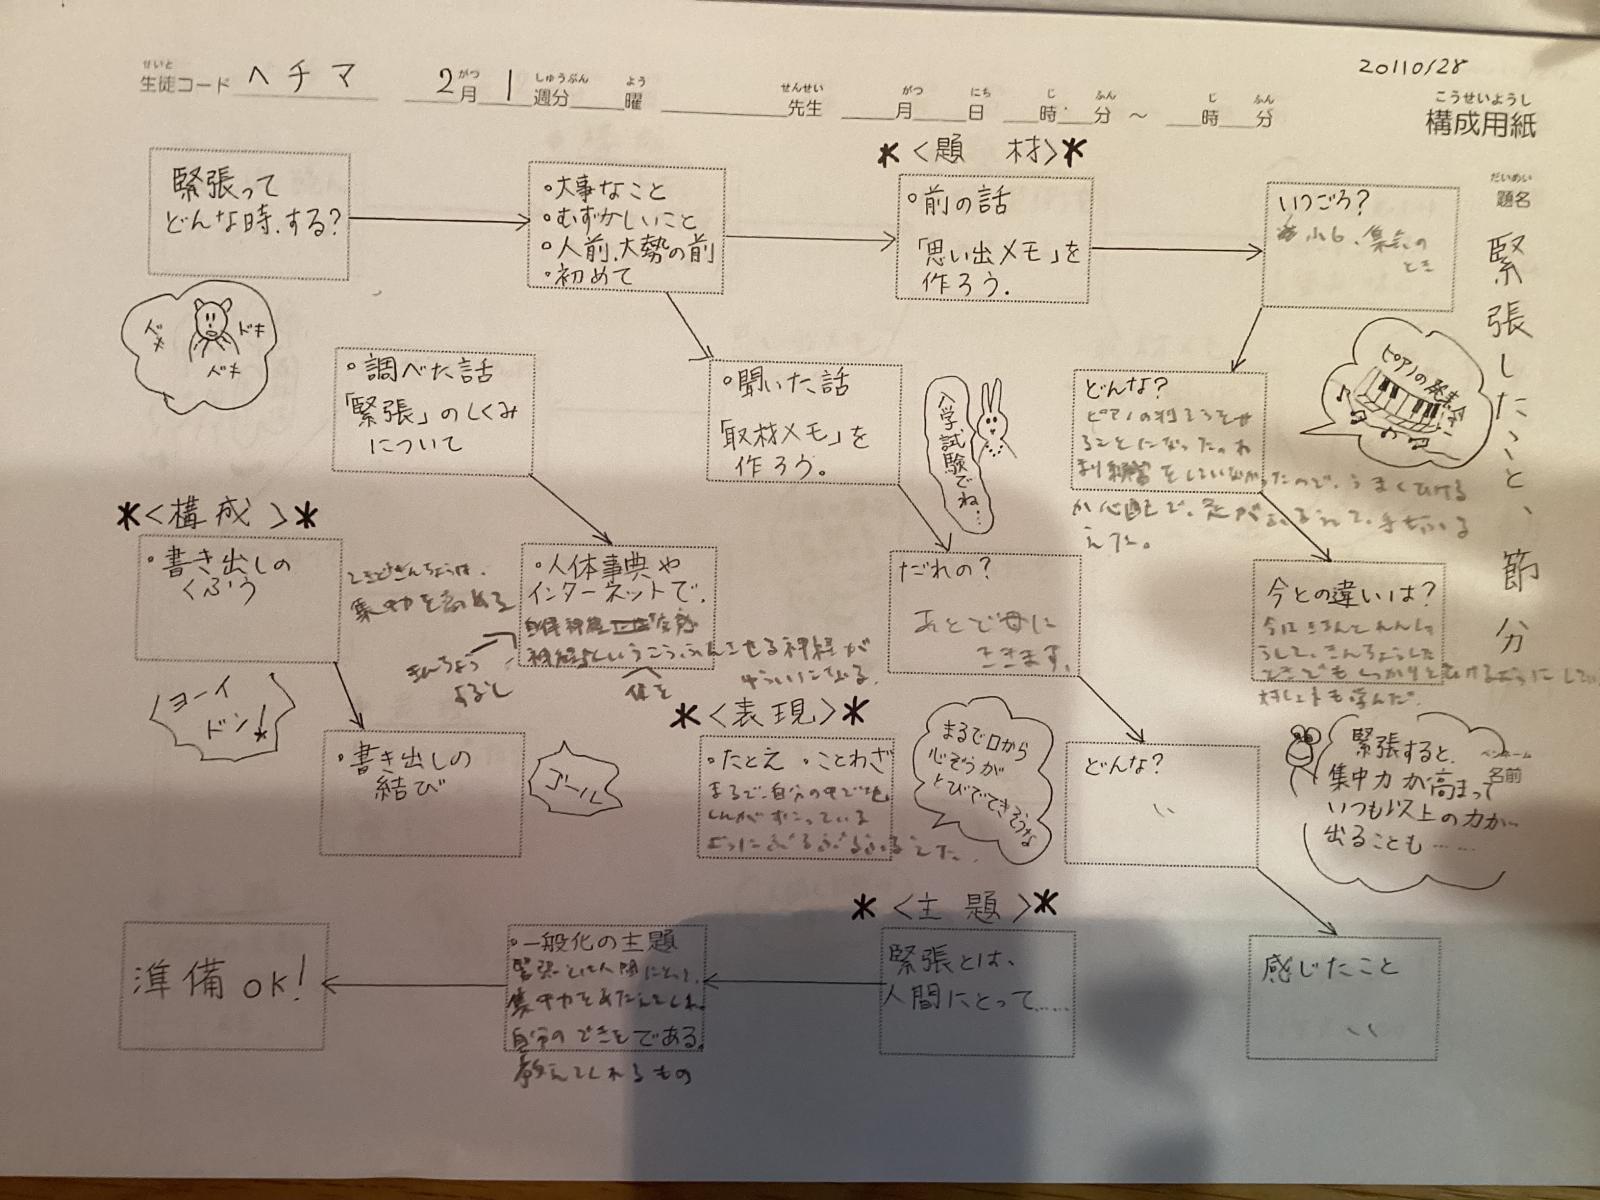 20110128
せいと がつ しゅうぶん よう せんせい がつ にち じ ふん じ ふん
生徒コード ヘチマ 2月 1週分 曜 先生 月 日 時 分 〜 時 分
こうせいようし
構成用紙
だいめい
題名
緊張したこと、節分
ペンネーム
名前
緊張って
どんな時、する?
・大事なこと
・むずかしいこと
・人前、大勢の前
・初めて
*〈題 材〉*
・前の話
「思い出メモ」を
作ろう.
いつごろ?
小6、集会の
とき
ドキ
ドキ
ドキ
・調べた話
「緊張」のしくみ
について
・聞いた話
「取材メモ」を
作ろう。
入学試験でね…
どんな?
ピアノの
ることになった。
をしていなかったので、うまくひける
か心配で、
えた。
ピアノの発表会
*〈構成〉*
・書き出しの
くふう
集中力を高める
・人体事典や
インターネットで.
というこうふんさせる神経が
きんちょう
体を
だれの?
あとで母に
ききます。
今との違いは?
今はきちんとれんしゅ
うして、きんちょうした
ときでもしっかりとひけるように
ヨーイ
ドン!
・書き出しの
結び
ゴール
*〈表現〉*
・たとえ ・ことわざ
まるで、自分の中で地
しんがおこっている
ようにぶるぶるふるえた。
まるで口から
心ぞうが
とびでてきそうな
どんな?
〃
緊張すると、
集中力が高まって
いつも以上の力が…
出ることも……
*〈主 題〉*
準備OK!
・一般化の主題
緊張とは人間にとって、
集中力をあたえてくれ、
自分の できを である。
教えてくれるもの
緊張とは、
人間にとって……
感じたこと
〃